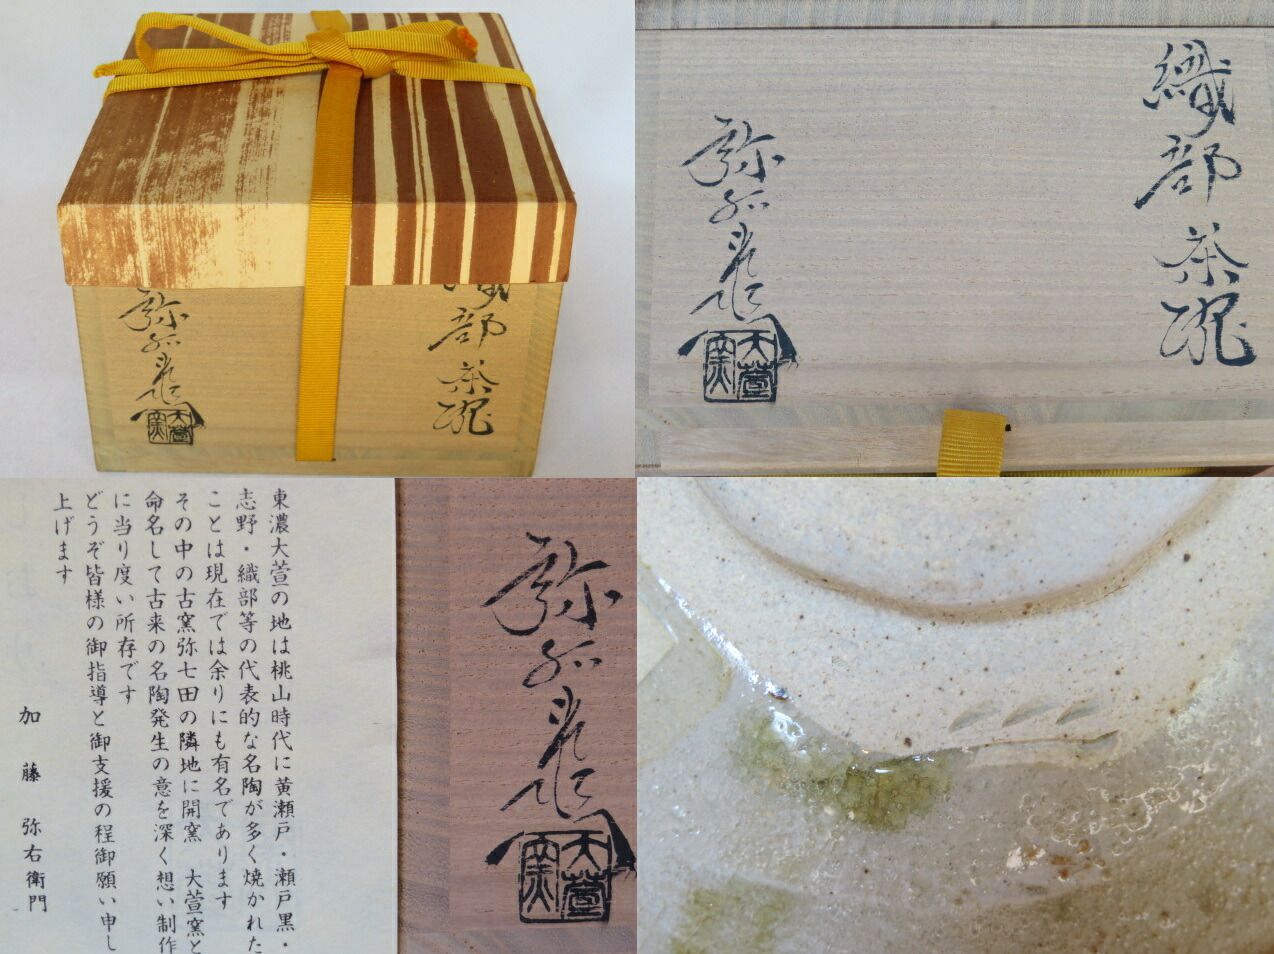 部
茶
碗
弥
大萱
窯
織部茶碗
弥
大萱
窯
東濃大萱の地は桃山時代に黄瀬戸・瀬戸黒・
志野・織部等の代表的な名陶が多く焼かれた
ことは現在では余りにも有名であります
その中の古窯弥七田の隣地に開窯 大萱窯と
命名して古来の名陶発生の意を深く想い制作
に当り度い所存です
どうぞ皆様の御指導と御支援の程御願い申し
上げます
加藤弥右衛門
弥
大萱
窯